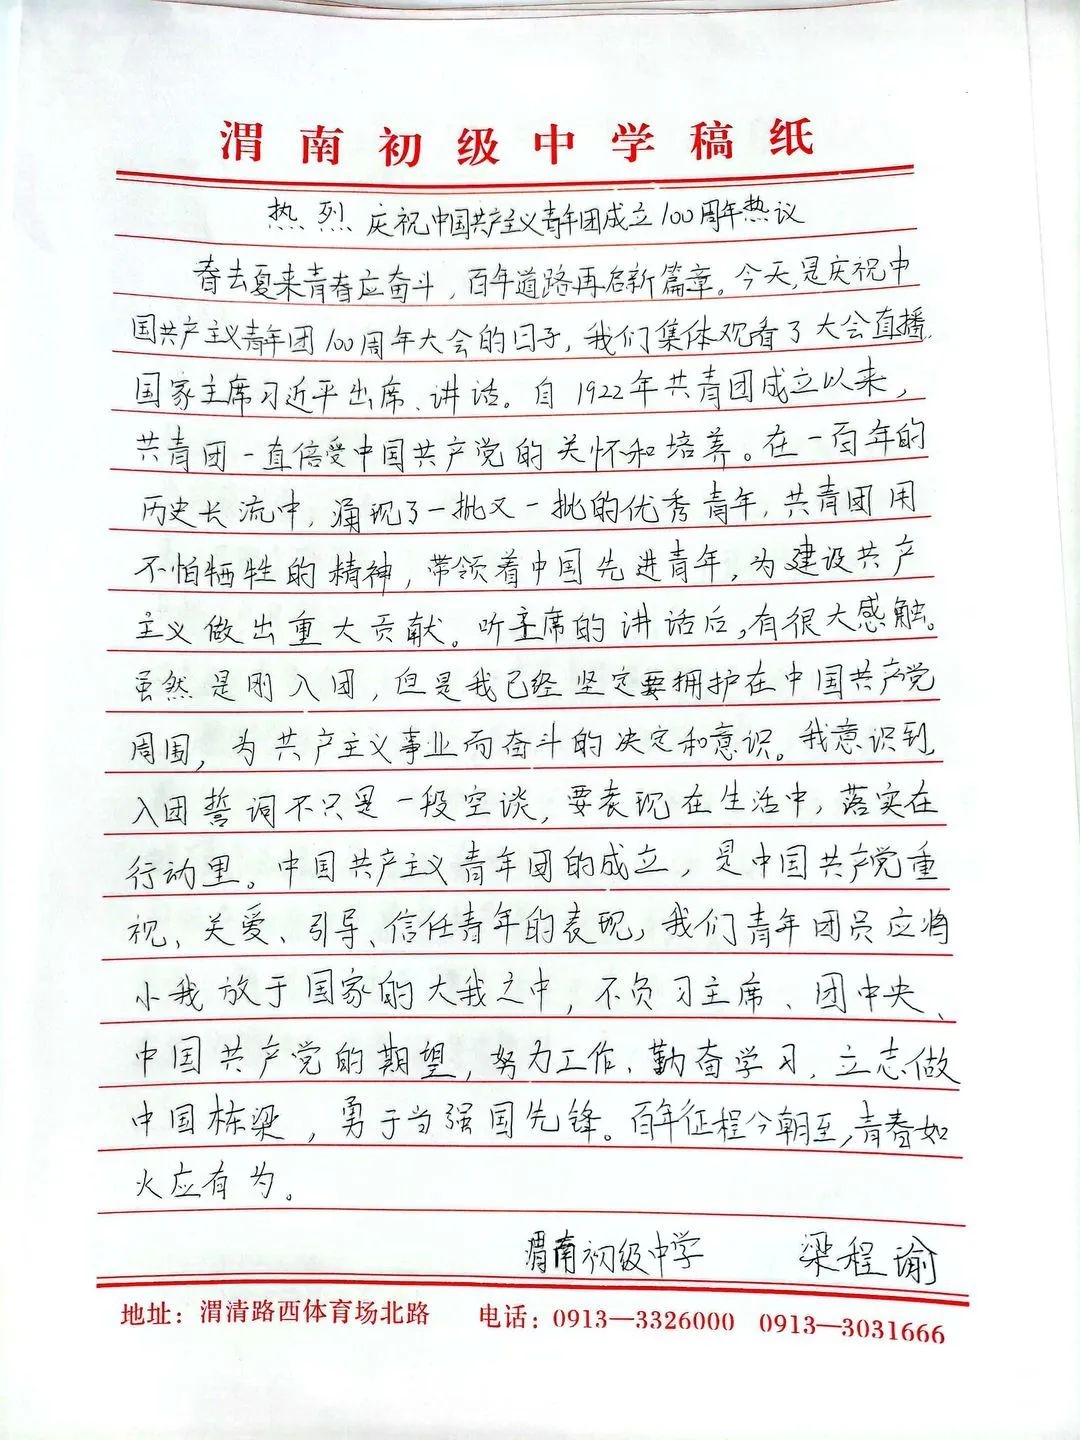 渭南初级中学稿纸
热烈庆祝中国共产主义青年团成立100周年热议
春去夏来青春应奋斗，百年道路再启新篇章。今天，是庆祝中
国共产主义青年团100周年大会的日子，我们集体观看了大会直播，
国家主席习近平出席、讲话。自1922年共青团成立以来，
共青团一直倍受中国共产党的关怀和培养。在一百年的
历史长流中，涌现了一批又一批的优秀青年，共青团用
不怕牺牲的精神，带领着中国先进青年，为建设共产
主义做出重大贡献。听主席的讲话后，有很大感触。
虽然是刚入团，但是我已经坚定要拥护在中国共产党
周围，为共产主义事业而奋斗的决定和意识。我意识到，
入团誓词不只是一段空谈，要表现在生活中，落实在
行动里。中国共产主义青年团的成立，是中国共产党重
视、关爱、引导、信任青年的表现，我们青年团员应将
小我放于国家的大我之中，不负习主席、团中央、
中国共产党的期望，努力工作、勤奋学习，立志做
中国栋梁，勇于当强国先锋。百年征程今朝至，青春如
火应有为。
渭南初级中学 梁程瑜
地址：渭清路西体育场北路 电话：0913—3326000 0913—3031666